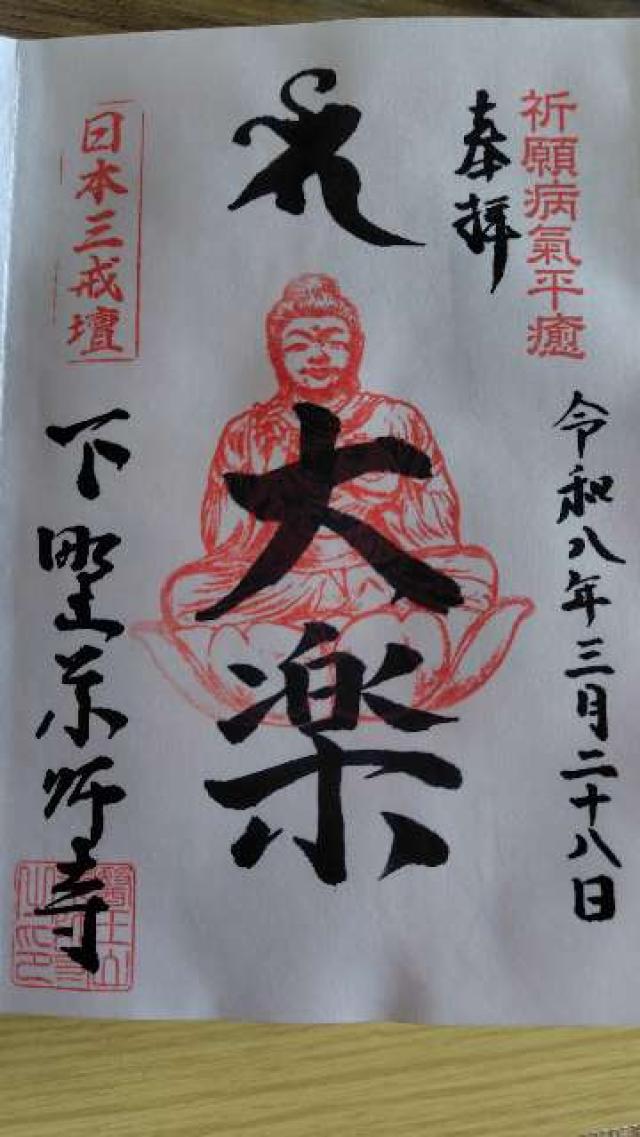 祈願病氣平癒
奉拝
令和八年三月二十八日
大楽
日本三戒壇
下野薬師寺